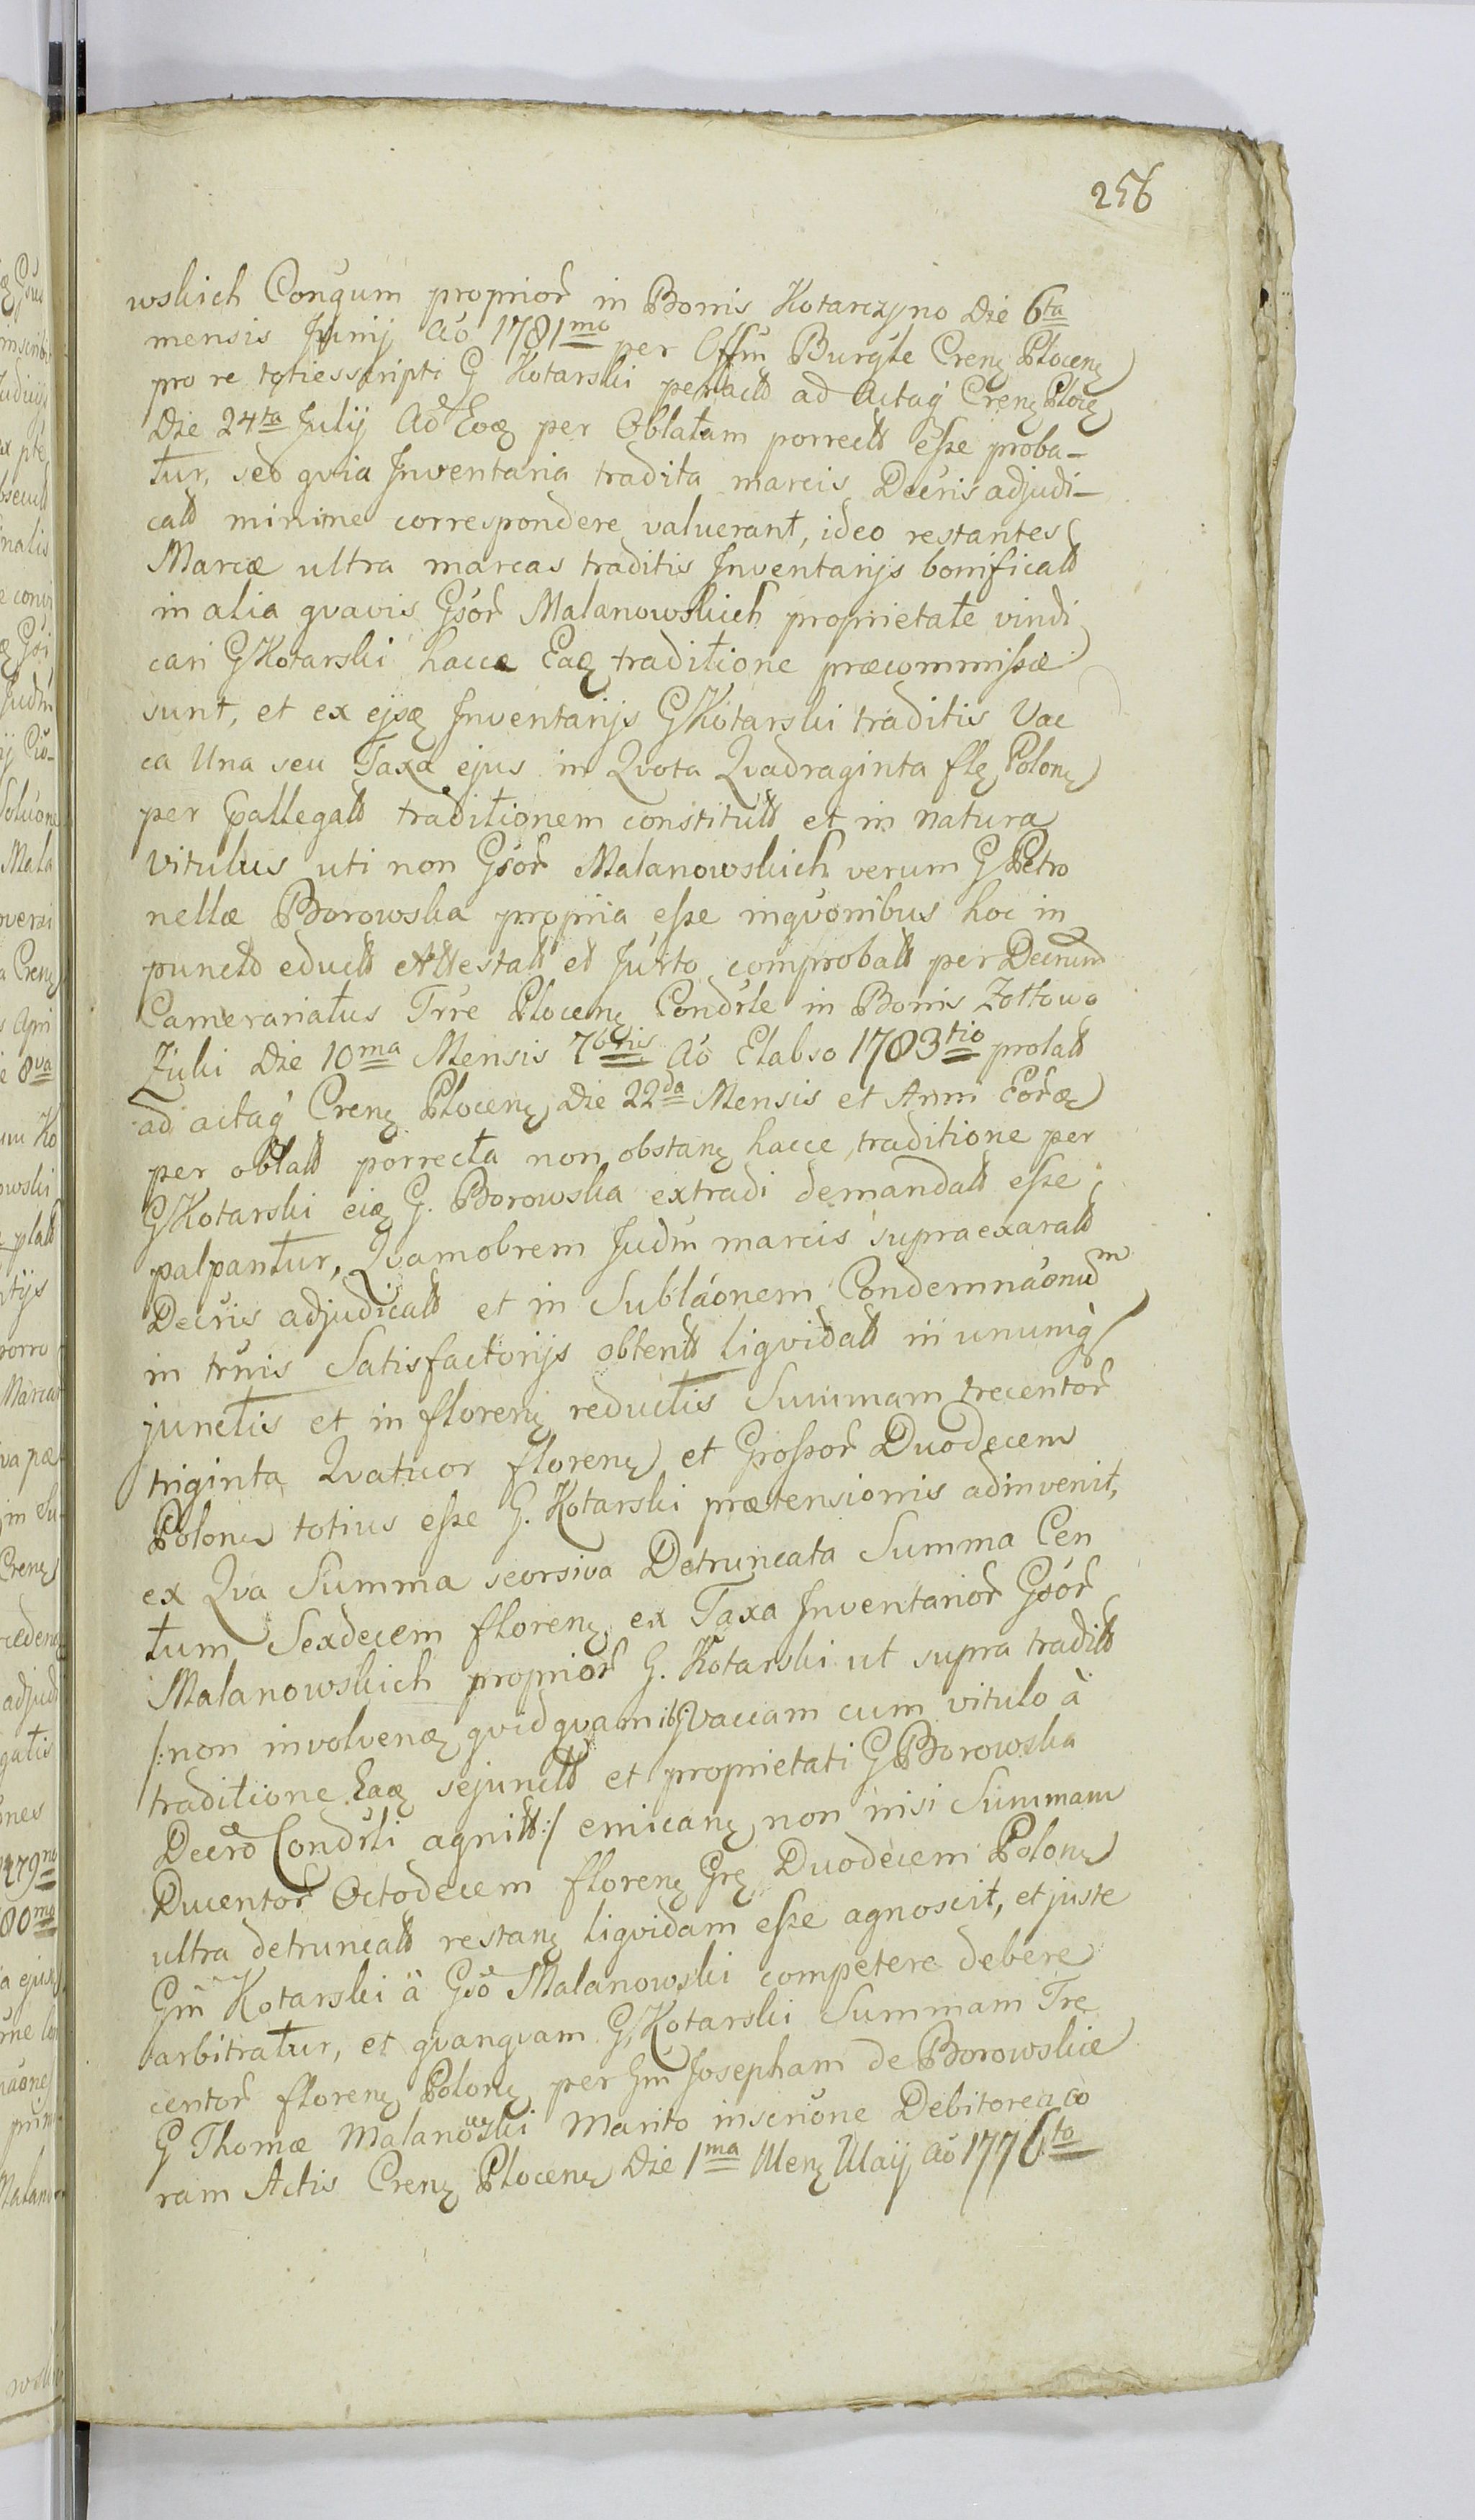 256
wskich Congum proprior in Bonis Kotarczyno Die 6ta
mensis Junij Ao 1781mo per Offm Burgle Crenę Plocenę
pro re totiesscripti G Kotarski peractt ad Actaq Crenę Plocę
Die 24ta Julij Ad Eoę per Oblatam porrectt eſse proba-
tur, sed qvia Inventaria tradita marcis Decris adjudi-
catt minime correspondere valuerant, ideo restantes
Marcæ ultra marcas traditis Inventarijs bonificatt
in alia qvavis Gsor Malanowskich proprietate vindi
cari G Kotarski hacce Eaę traditione præcommiſsæ
sunt, et ex ejsę Inventarijs G Kotarski traditis Vac
ca Una seu Taxa ejus in Qvota Qvadraginta flę Polonę
per pallegatt traditionem constitutt et in natura
vitulus uti non Gsor Malanowskich verum G Petro
nellæ Borowska propria eſse inqvonibus hoc in
puncto eductt Attestatt et Jurto comprobatt per Decrum
Camerariatus Trre Plocenę Condrle in Bonis Zottowo
Zuki Die 10ma Mensis 7bris Ao Elabso 1783tio prolatt
ad actaq Crenę Plocenę Die 22da Mensis et Anni Eorę
per oblatt porrecta non obstanę hacce traditione per
G Kotarski eię G. Borowska extradi demandatt eſse
palpantur, Qvamobrem Judm marcis supraexaratt
Decris adjudicatt et in Sublaonem Condemnaonum
in trnis Satisfactorijs obtentt liqvidatt in unumq
junctis et in florenę reductis Summam trecentor
triginta Qvatuor florenę et Groſsor Duodecem
Polonę totius eſse G. Kotarski prætensionis adinvenit,
ex Qva Summa seorsiva Detruncata Summa Cen
tum Sexdecem florenę ex Taxa Inventarior Gsor
Malanowskich proprior G. Kotarski ut supra traditt
/: non involvenę qvidqvam ibj Vaccam cum vitulo à
traditione Eaę sejunctt et proprietati G Borowska
Decro Condrli agnitt :/ emicanę non nisi Summam
Ducentor Octodecem florenę Grę Duodecem Polonę
ultra detruncatt restanę liqvidam eſse agnoscit, et juste
Gm Kotarski à Gso Malanowski competere debere
arbitratur, et qvanqvam G. Kotarski Summam Tre
centor florenę Polonę per Gm Josepham de Borowskie
G Thomæ Malanowski Marito inscrione Debitorea co
ram Actis Crenę Plocenę Die 1ma Menę Maij Ao 1776to